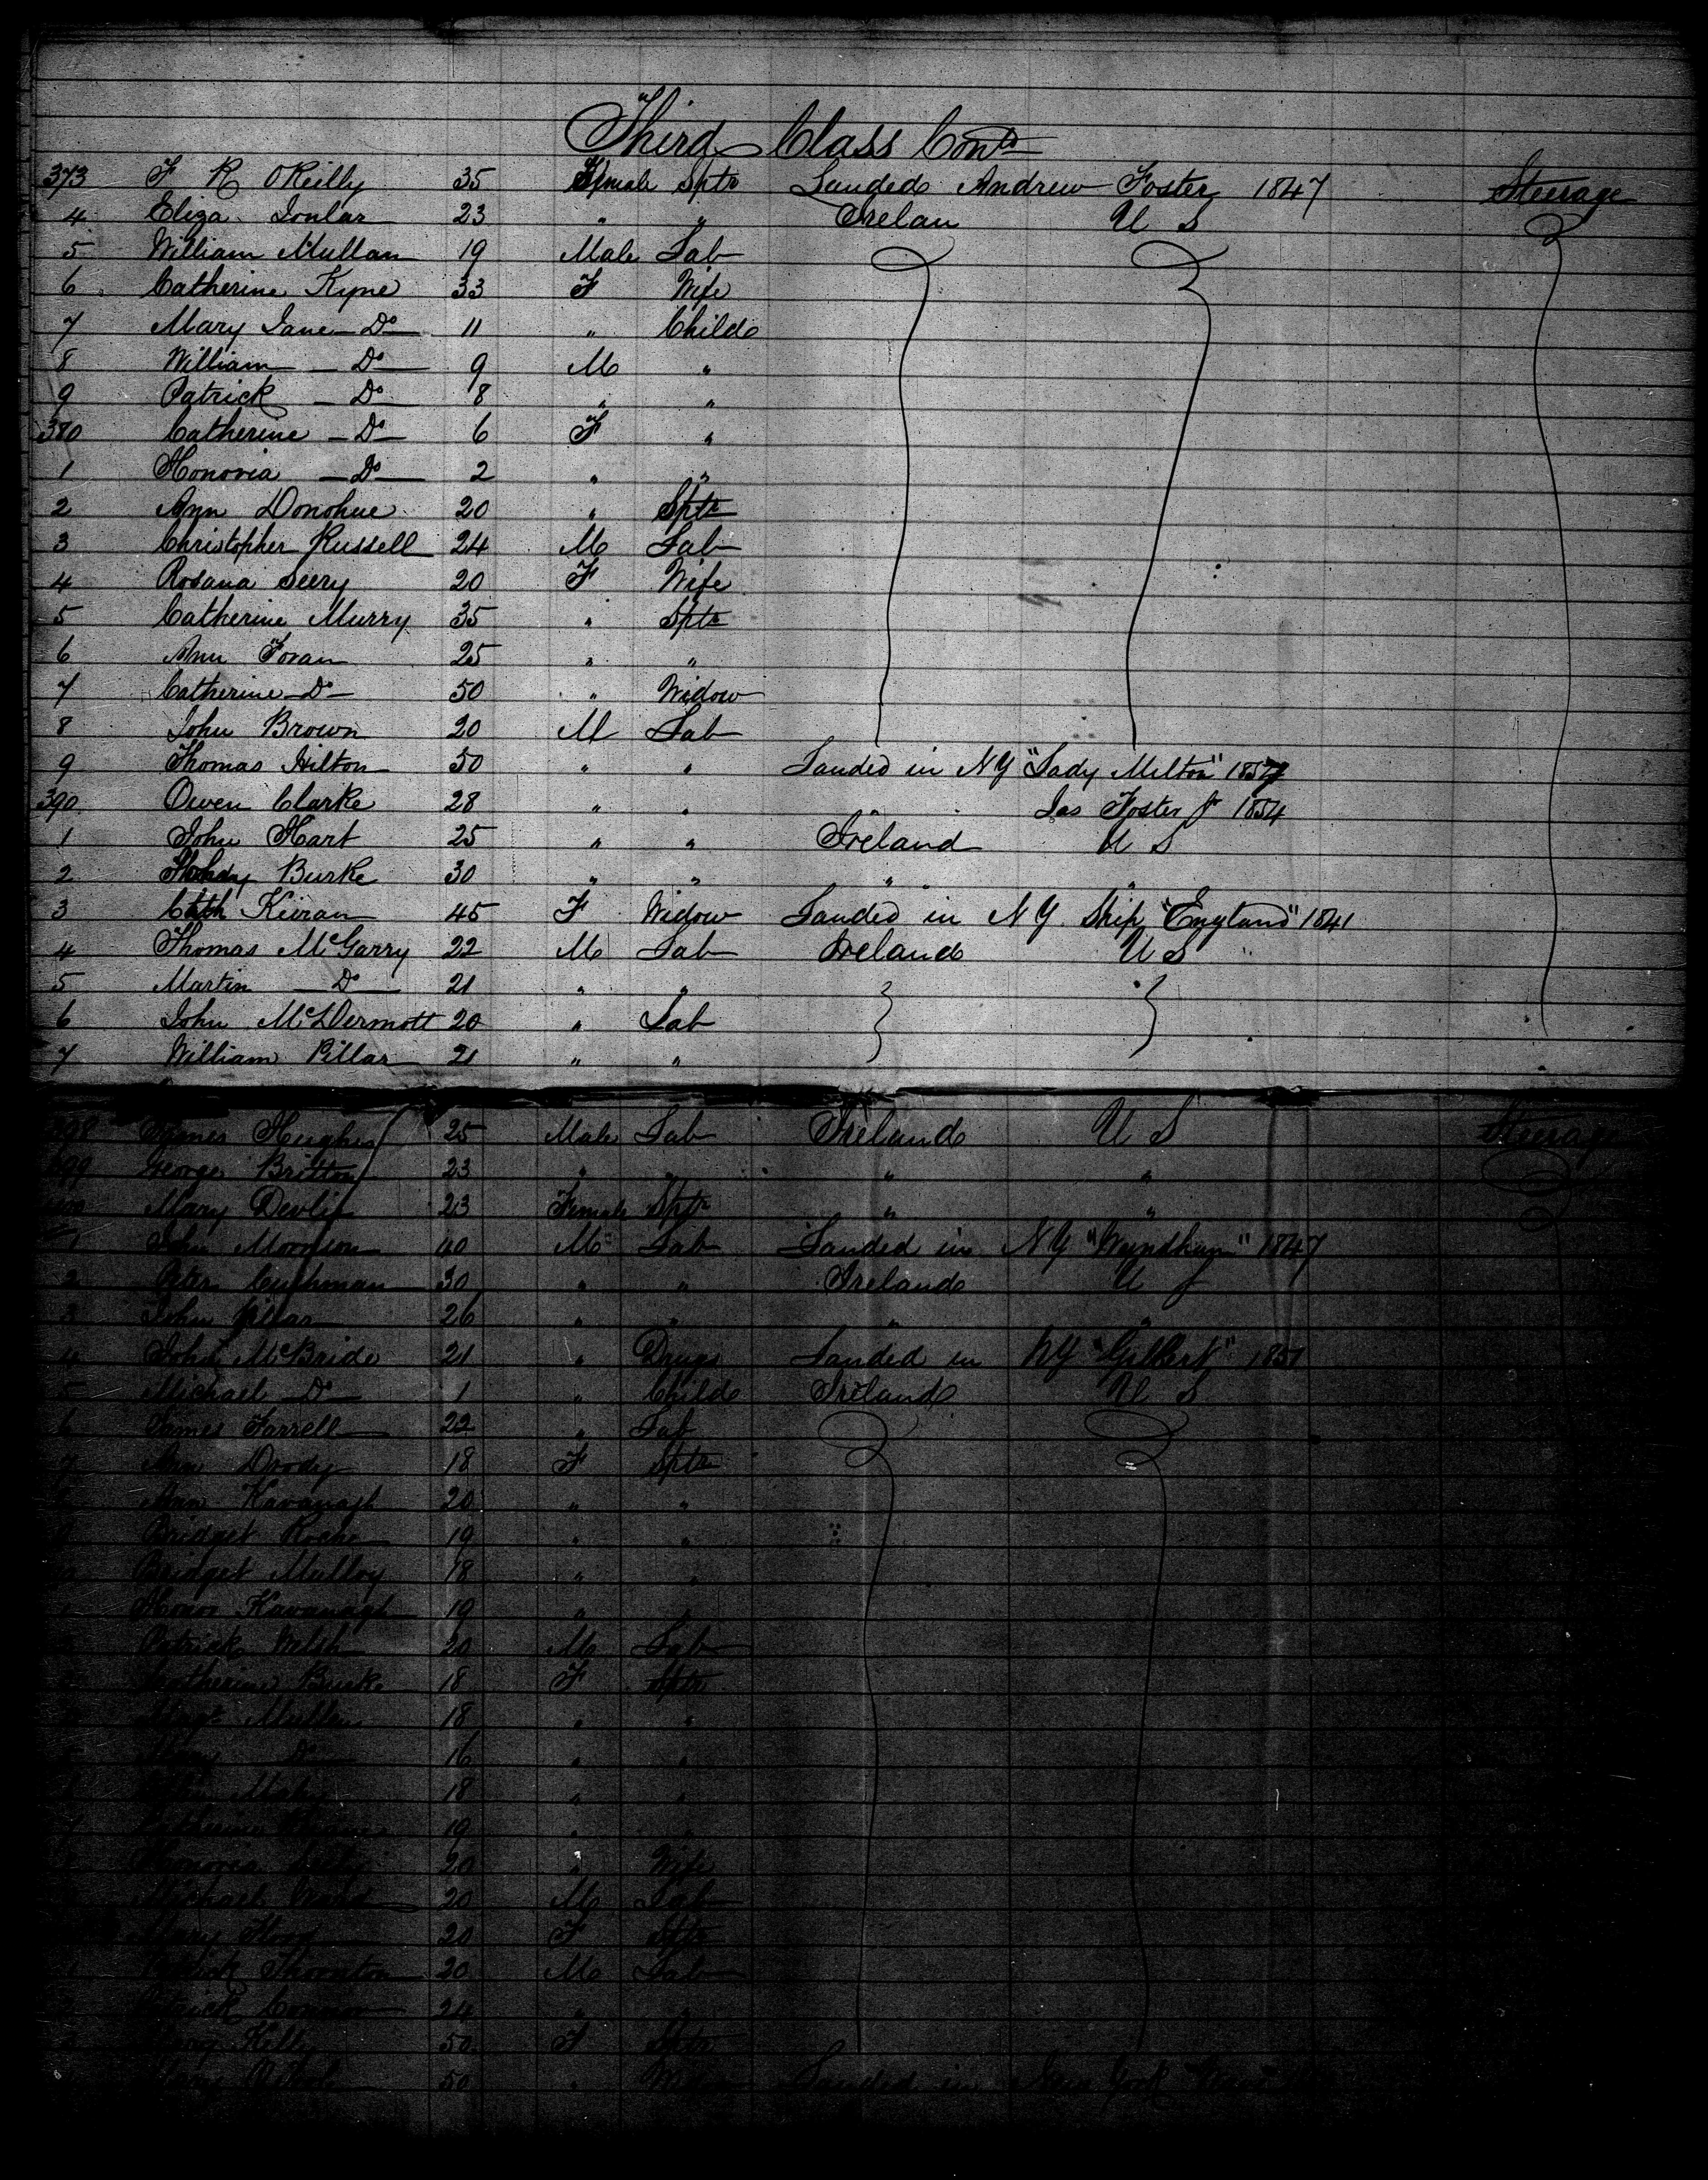 Third Class Contd
373 F R OReilly 35 Female Sptr Landed Andrew Foster 1847 Steerage
4 Eliza 23 " " Irelan U S
5 William Mullan 19 Male Lab
6 Catherine Kyne 33 F Wife
7 Mary Jane Do 11 " Child
8 William Do 9 M "
9 Patrick Do 8 " "
380 Catherine Do 6 F "
1 Honoria Do 2 " "
2 Ann Donohue 20 " Sptr
3 Christopher Russell 24 M Lab
4 Rosana Seery 20 F Wife
5 Catherine Murry 35 " Sptr
6 Ann Foran 25 " "
7 Catherine Do 50 " Widow
8 John Brown 20 M Lab
9 Thomas Hilton 50 " " Landed in NY "Lady Milton" 1857
390 Owen Clarke 28 " " Jas Foster Jr 1854
1 John Hart 25 " " Ireland U S
2 Burke 30 " " " "
3 Cath Kieran 45 F Widow Landed in NY Ship "England" 1841
4 Thomas McGarry 22 M Lab Ireland U S
5 Martin Do 21 " "
6 John McDermott 20 " Lab
7 William Pillar 21 " "
398 James Hughes 25 Male Lab Ireland U S Steerage
399 George Britton 23 " " " "
400 Mary Devlin 23 Female Sptr " "
1 John Morrison 40 M Lab Landed in NY "Wyndham" 1847
2 Peter Cushman 30 " " Ireland U S
3 John Pillar 26 " " " "
4 John McBride 21 " Landed in NY 1851
5 Michael Do 1 " Child Ireland U S
6 James Farrell 22 " Lab
7 Ann 18 F Sptr
Ann Kavanagh 20 " "
Bridget Roche 19 " "
Bridget Mulloy 18 " "
Honor Kavanagh 19 " "
Patrick Welsh 20 M Lab
Catherine Burke 18 F Sptr
Margt Mullen 18 " "
Do 16 " "
18 " "
Catherine 19 " "
Honoria 20 " Wife
Michael 20 M Lab
Mary 20 F Sptr
Patrick Thornton 20 M Lab
Patrick Connor " "
Mary Kelly 50 F Sptr
Mary 50 " Widow Landed in New York